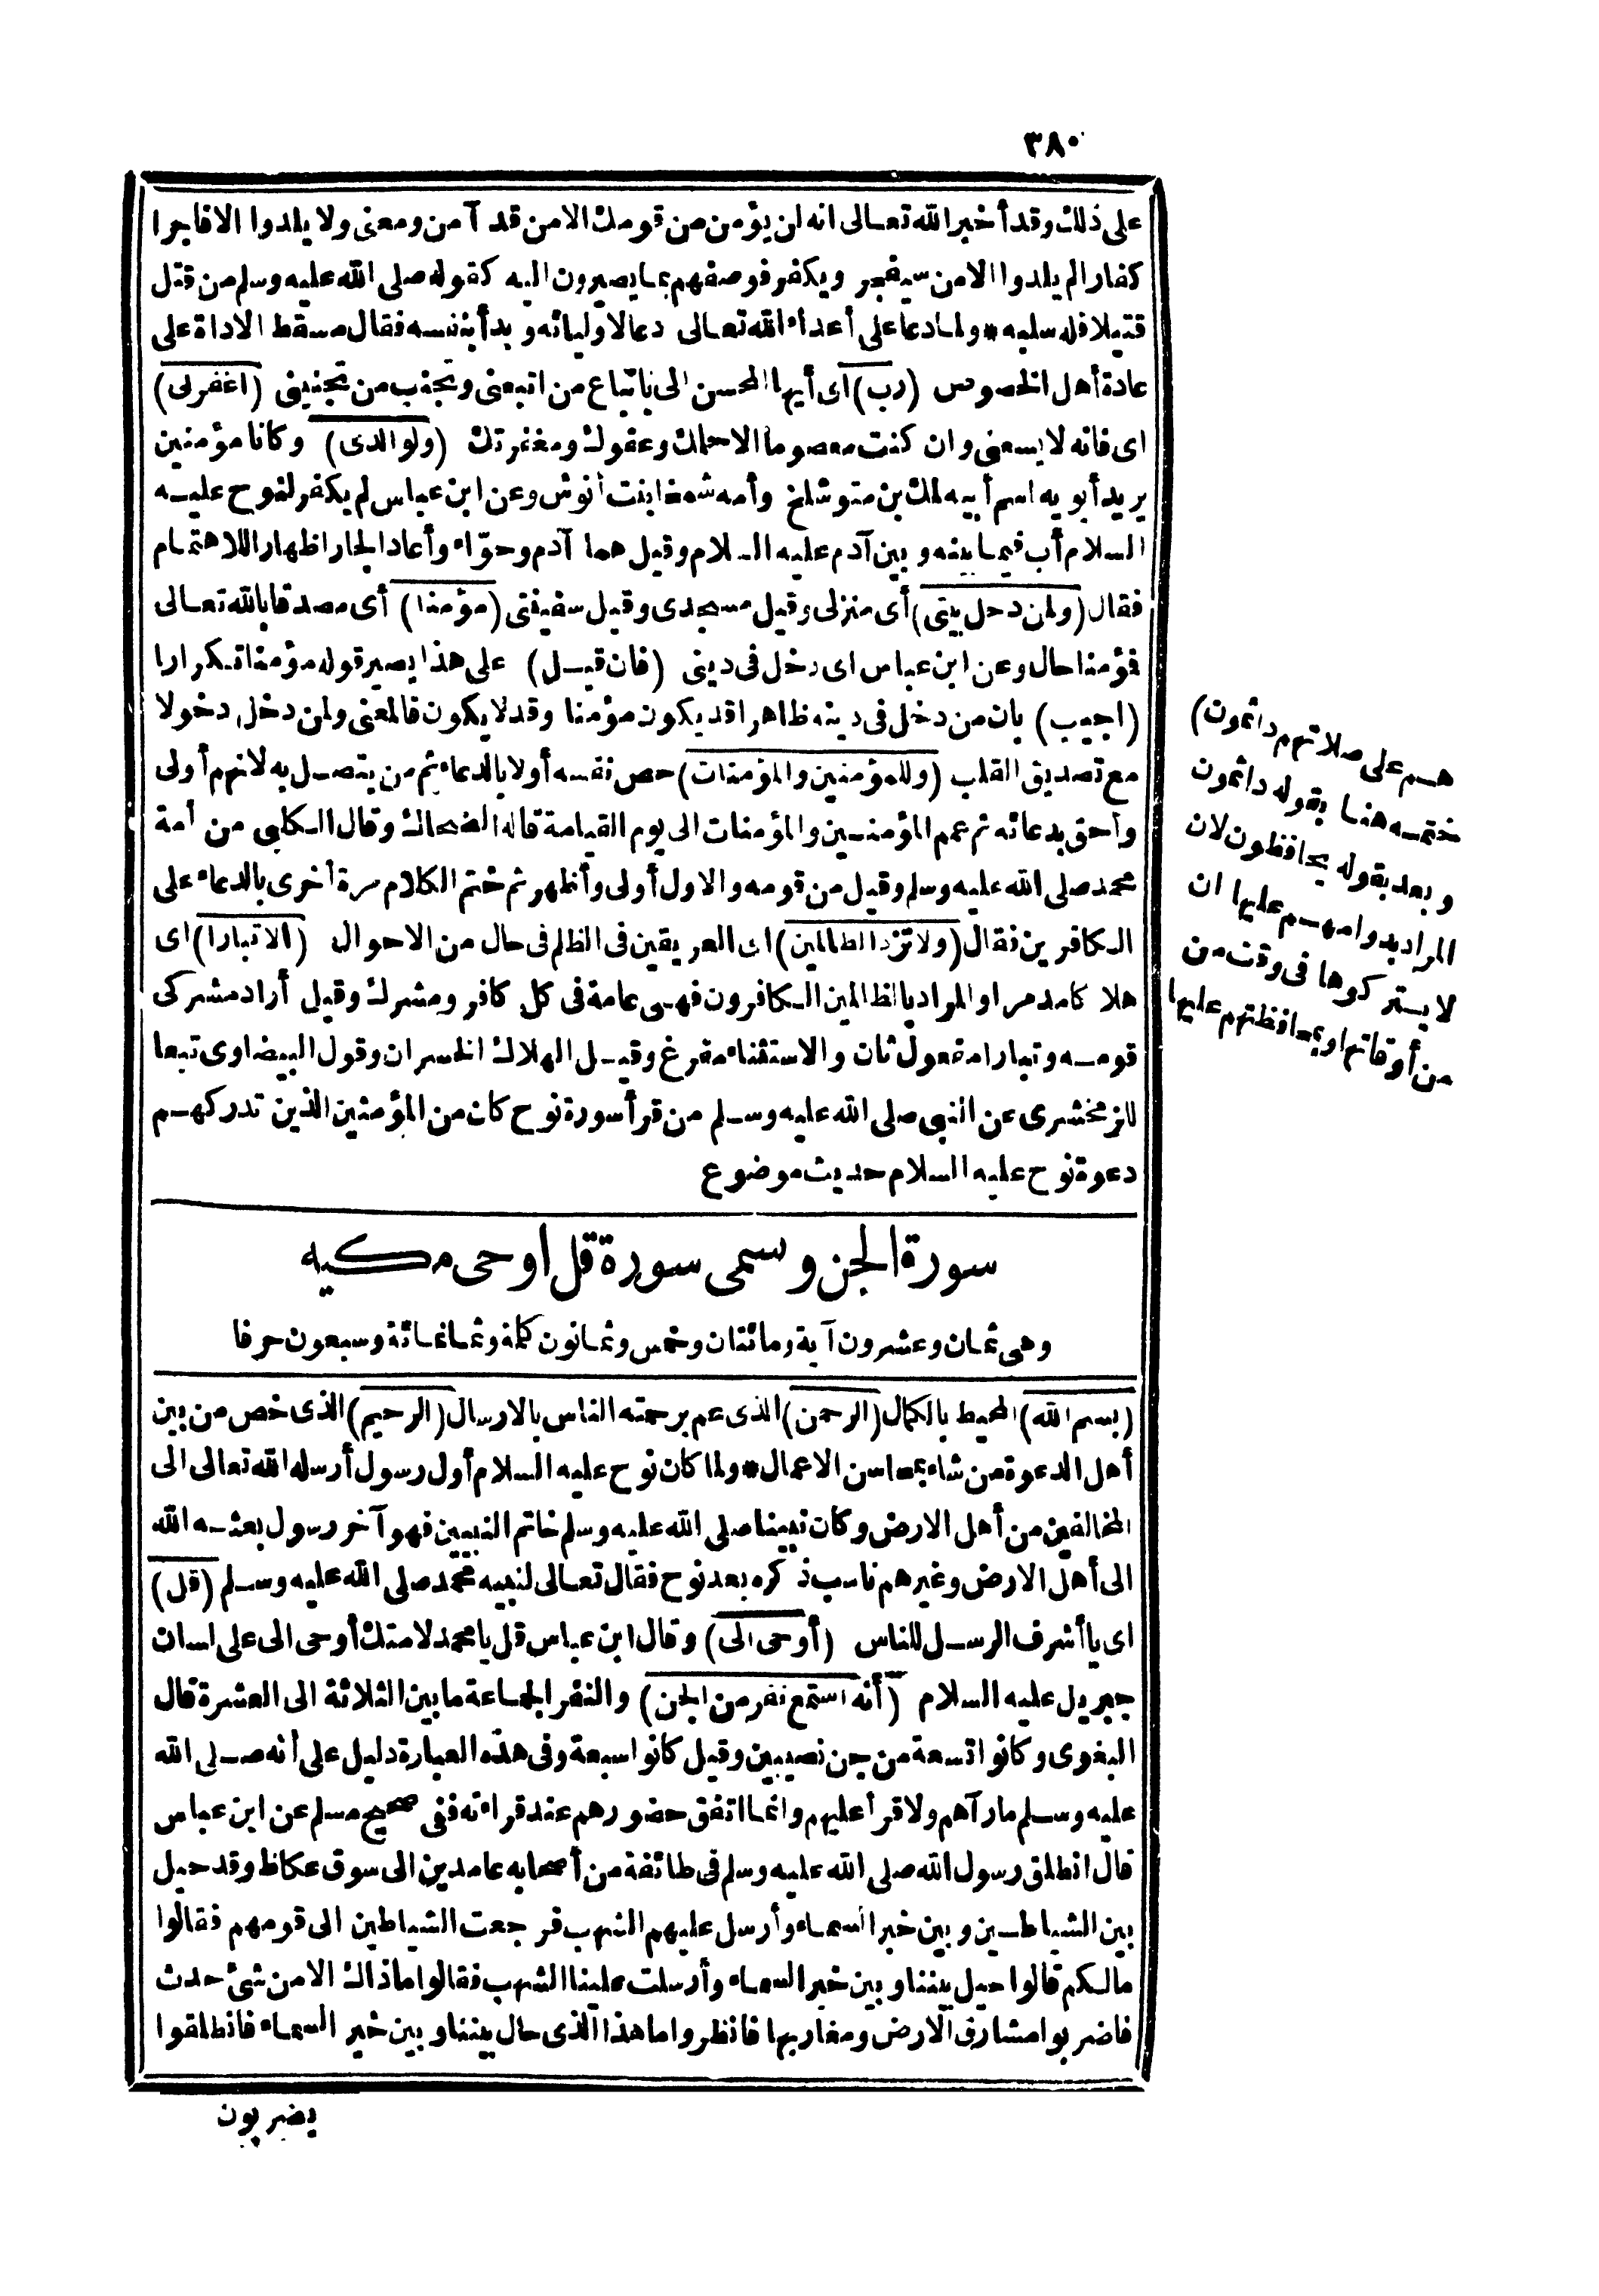 ٣٨٠
على ذلك وقد أخبر الله تعالى انه لن يؤمن من قومك الا من قد آمن ومعنى ولا يلدوا الا فاجرا
كفارا لم يلدوا الا من سيفجر ويكفر فوصفهم بما يصيرون اليه كقوله صلى الله عليه وسلم من قتل
قتيلا فله سلبه * ولما دعا على أعداء الله تعالى دعا لاوليائه وبدأ بنفسه فقال مسقط الاداة على
عادة أهل الخصوص (رب) اى أيها المحسن الى باتباع من اتبعنى وتجنب من تجنبنى (اغفر لى)
اى فانه لا يسعنى وان كنت معصوما الا حلمك وعفوك ومغفرتك (ولوالدى) وكانا مؤمنين
يريد أبويه اسم أبيه لمك بن متوشلخ وأمه شمخا بنت أنوش وعن ابن عباس لم يكفر لنوح عليه
السلام أب فيما بينه وبين آدم عليه السلام وقيل هما آدم وحوّاء وأعاد الجار اظهارا للاهتمام
فقال (ولمن دخل بيتى) أى منزلى وقيل مسجدى وقيل سفينتى (مؤمنا) أى مصدقا بالله تعالى
فؤمنا حال وعن ابن عباس اى دخل فى دينى (فان قيل) على هذا يصير قوله مؤمنا تكرارا
(اجيب) بان من دخل فى دينه ظاهرا قد يكون مؤمنا وقد لا يكون فالمعنى ولمن دخل دخولا
مع تصديق القلب (وللمؤمنين والمؤمنات) خص نفسه أولا بالدعاء ثم من يتصل به لانهم أولى
وأحق بدعائه ثم عمم المؤمنين والمؤمنات الى يوم القيامة قاله الضحاك وقال الكلبى من أمة
محمد صلى الله عليه وسلم وقيل من قومه والاول أولى وأظهر ثم ختم الكلام مرة أخرى بالدعاء على
الكافرين فقال (ولا تزد الظالمين) اى العريقين فى الظلم فى حال من الاحوال (الا تبارا) اى
هلاكا مدمرا والمراد بالظالمين الكافرون فهى عامة فى كل كافر ومشرك وقيل أراد مشركى
قومه وتبارا مفعول ثان والاستثناء مفرغ وقيل الهلاك الخسران وقول البيضاوى تبعا
للزمخشرى عن النبى صلى الله عليه وسلم من قرأ سورة نوح كان من المؤمنين الذين تدركهم
دعوة نوح عليه السلام حديث موضوع
سورة الجن وسمى سورة قل اوحى مكيه
وهى ثمان وعشرون آية ومائتان وخمس وثمانون كلمة وثمانمائة وسبعون حرفا
(بسم الله) المحيط بالكمال (الرحمن) الذى عم برحمته الناس بالارسال (الرحيم) الذى خص من بين
أهل الدعوة من شاء بمحاسن الاعمال * ولما كان نوح عليه السلام أول رسول أرسله الله تعالى الى
المخالفين من أهل الارض وكان نبينا صلى الله عليه وسلم خاتم النبيين فهو آخر رسول بعثه الله
الى أهل الارض وغيرهم ناسب ذكره بعد نوح فقال تعالى لنبيه محمد صلى الله عليه وسلم (قل)
اى يا أشرف الرسل للناس (أوحى الى) وقال ابن عباس قل يا محمد لامتك أوحى الى على لسان
جبريل عليه السلام (أنه استمع نفر من الجن) والنفر الجماعة ما بين الثلاثة الى العشرة قال
البغوى وكانوا تسعة من جن نصيبين وقيل كانوا سبعة وفى هذه العبارة دليل على أنه صلى الله
عليه وسلم ما رآهم ولا قرأ عليهم وانما اتفق حضورهم عند قراءته ففى صحيح مسلم عن ابن عباس
قال انطلق رسول الله صلى الله عليه وسلم فى طائفة من أصحابه عامدين الى سوق عكاظ وقد حيل
بين الشياطين وبين خبر السماء وأرسل عليهم الشهب فرجعت الشياطين الى قومهم فقالوا
مالكم قالوا حيل بيننا وبين خبر السماء وأرسلت علينا الشهب فقالوا ما ذاك الا من شئ حدث
فاضربوا مشارق الارض ومغاربها فانظروا ما هذا الذى حال بيننا وبين خبر السماء فانطلقوا
يضربون
هم على صلاتهم دائمون)
ختمه هنا بقوله دائمون
وبعد بقوله يحافظون لان
المراد بدوامهم عليها ان
لا يتركوها فى وقت من
من أوقاتها وبمحافظتهم عليها